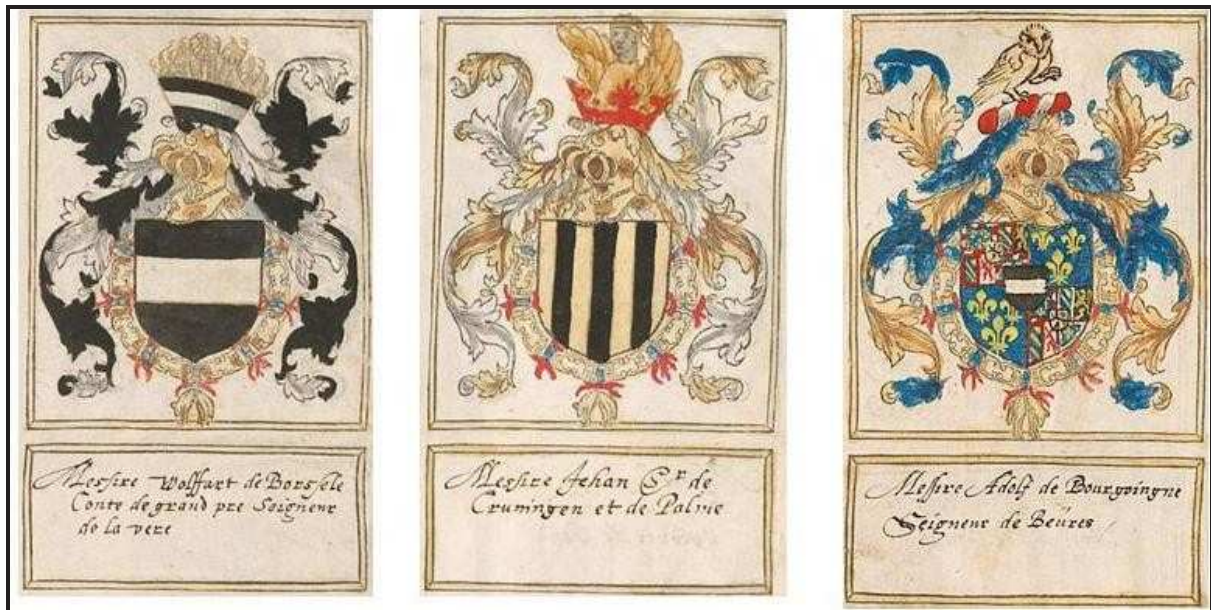 Messire Wolffart de Borssele
Conte de grand pre Seigneur
de la vere
Messire Jehan Sr de
Cruningen et de Palme
Messire Adolf de Bourgoingne
Seigneur de Beüres